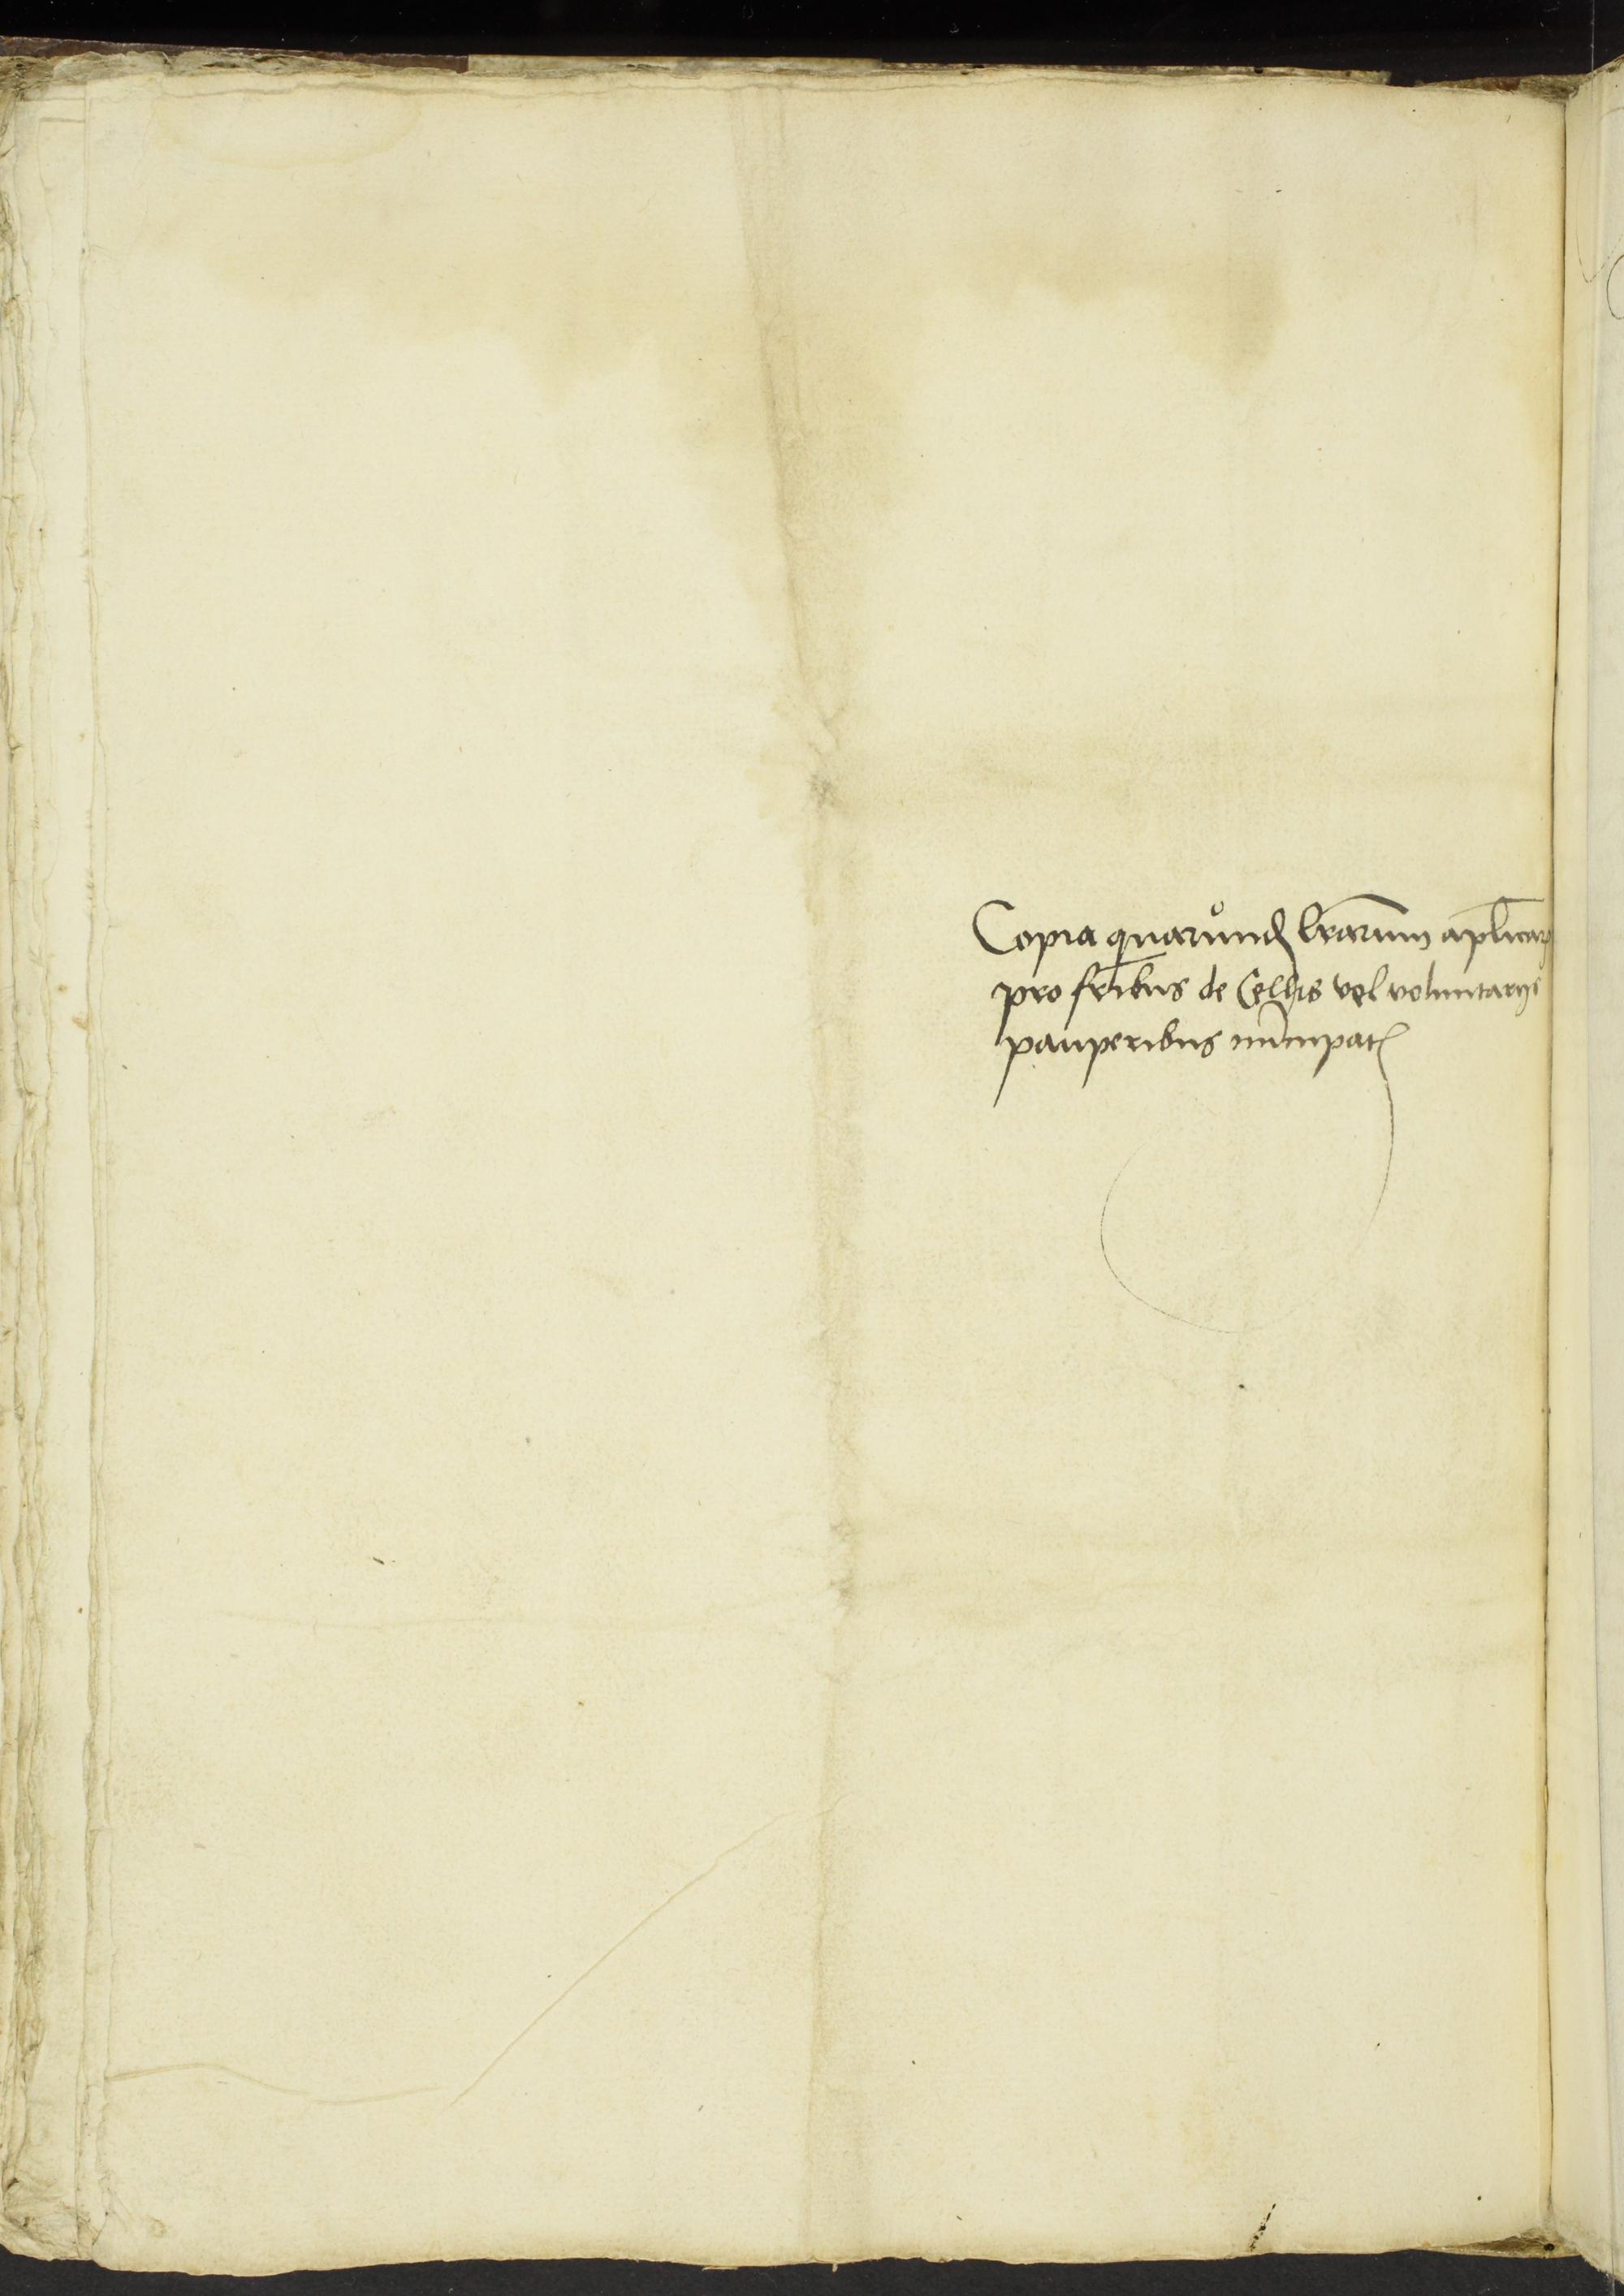 Copia quarund lrarum aplicar
pro fribus de Cellis vel voluntarijs
pauperibus nucupat